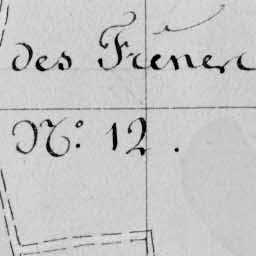 des Frênes
N.º 12.